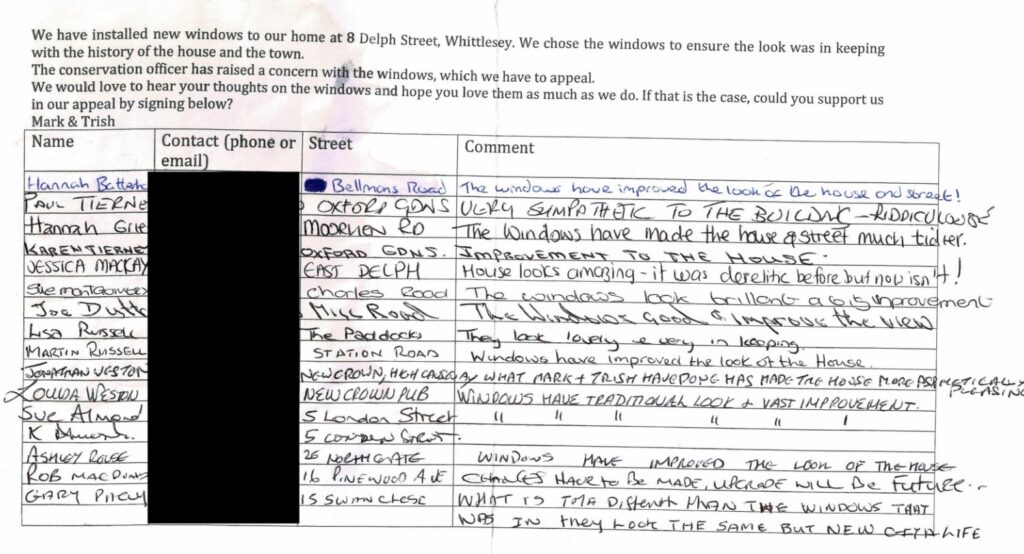 We have installed new windows to our home at 8 Delph Street, Whittlesey. We chose the windows to ensure the look was in keeping
with the history of the house and the town.
The conservation officer has raised a concern with the windows, which we have to appeal.
We would love to hear your thoughts on the windows and hope you love them as much as we do. If that is the case, could you support us
in our appeal by signing below?
Mark & Trish
Name Contact (phone or email) Street Comment
Hannah Bellmans Road The windows have improved the look of the house and street!
PAUL TIERNE OXFORD GDNS VERY SYMPATHETIC TO THE BUILDING -
Hannah MOORHEN RD The windows have made the house & street much tidier.
KAREN TIERNE OXFORD GDNS. IMPROVEMENT TO THE HOUSE.
JESSICA MACKAY EAST DELPH House looks amazing - it was derelitc before but now isn't!
Charles Road The windows look brillant a big improvement
Joe Road The Windows Good & improve the view
Lisa Russell The Paddocks They look lovely & very in keeping.
MARTIN RUSSELL STATION ROAD Windows have improved the look of the House.
JONATHAN WESTON NEW CROWN, HIGH CAUSEWAY WHAT MARK + TRISH HAVE DONE HAS MADE THE HOUSE MORE PLEASING
WESTON NEW CROWN PUB WINDOWS HAVE TRADITIONAL LOOK & VAST IMPROVEMENT.
Sue Almond 5 London Street " " " " "
K 5 LONDON
ASHLEY ROUSE 26 NORTHGATE WINDOWS HAVE IMPROVED THE LOOK OF THE HOUSE
ROB 16 PINEWOOD AVE CHANGES HAVE TO BE MADE, UPGRADE WILL BE FUTURE...
GARY 15 WHAT IS THAN THE WINDOWS THAT
WAS IN they LOOK THE SAME BUT NEW LIFE